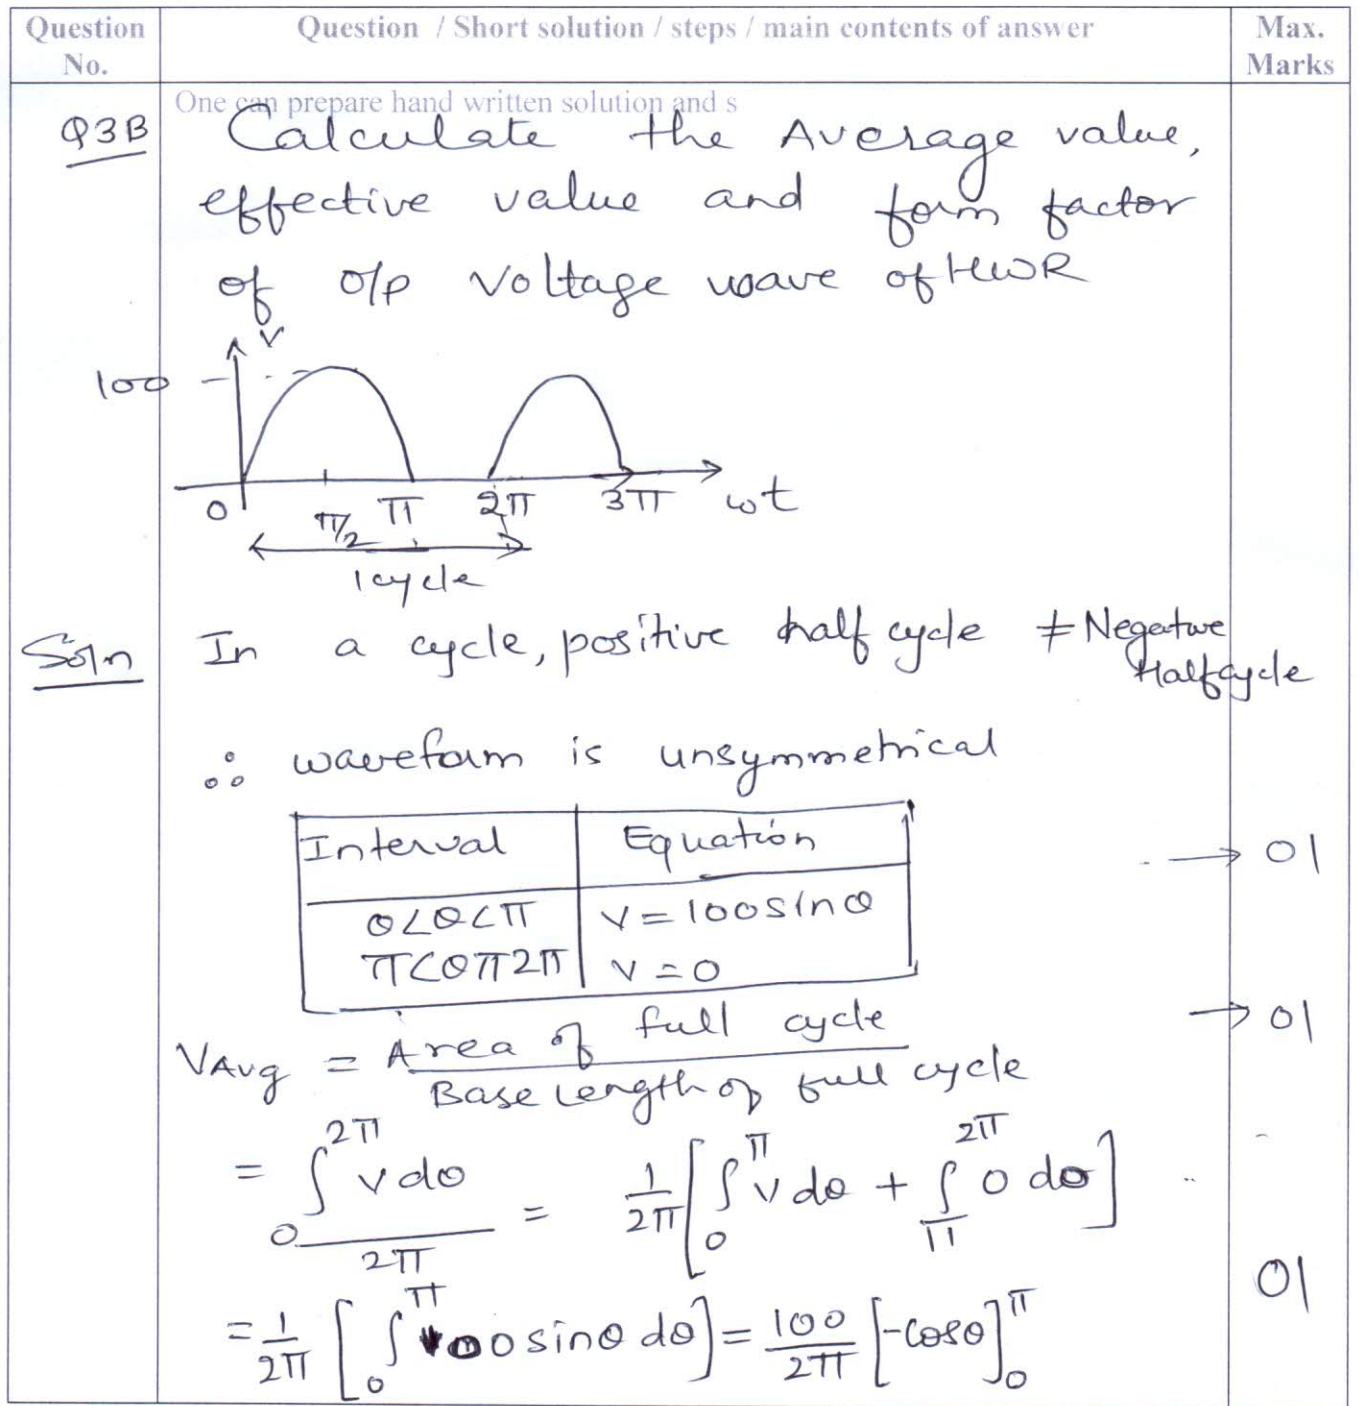 Question No.
Question / Short solution / steps / main contents of answer
Max. Marks
One can prepare hand written solution and s
Q3B
Calculate the Average value,
effective value and form factor
of o/p voltage wave of HWR
V
100
0 π/2 π 2π 3π ωt
1 cycle
Soln
In a cycle, positive half cycle ≠ Negative
Half cycle
∴ waveform is unsymmetrical
Interval Equation
→ 01
0<θ<π V = 100 sinθ
π<θπ2π V = 0
VAvg = Area of full cycle / Base length of full cycle
→ 01
= ∫₀^2π v dθ / 2π = 1/2π [∫₀^π v dθ + ∫π^2π 0 dθ]
01
= 1/2π [∫₀^π 100 sinθ dθ] = 100/2π [-cosθ]₀^π